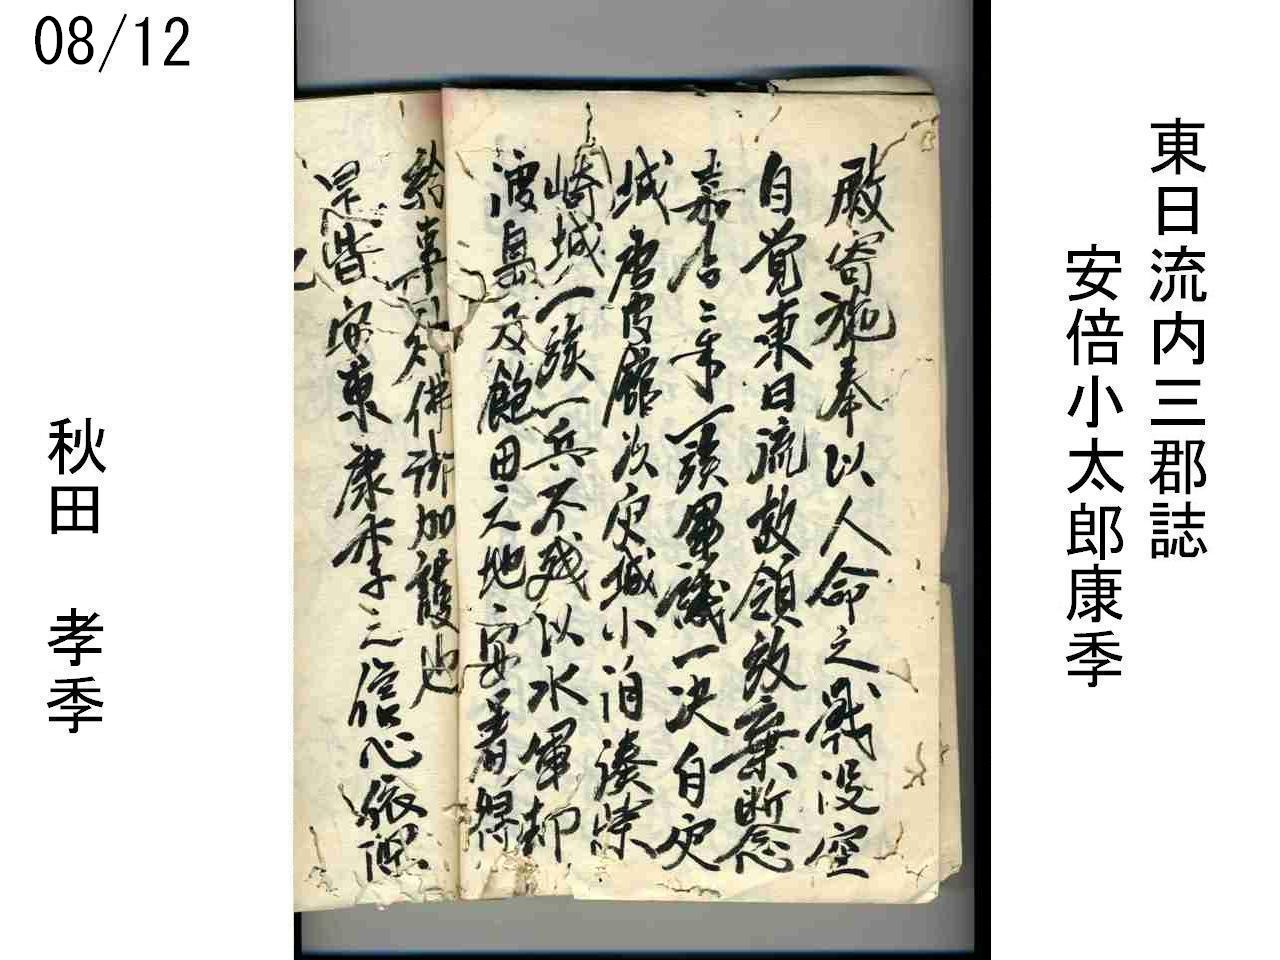 08/12
東日流内三郡誌
安倍小太郎康季
殿寄施奉以人命之戦没空
自覚東日流放領放棄断念
嘉吉三年一族軍議一決自
城唐皮館次 城小泊湊柴
崎城一族一兵不残以水軍却
渡島及飽田之地安着得
給事 知佛 加護也
是皆安東康季之信心依
秋田　孝季